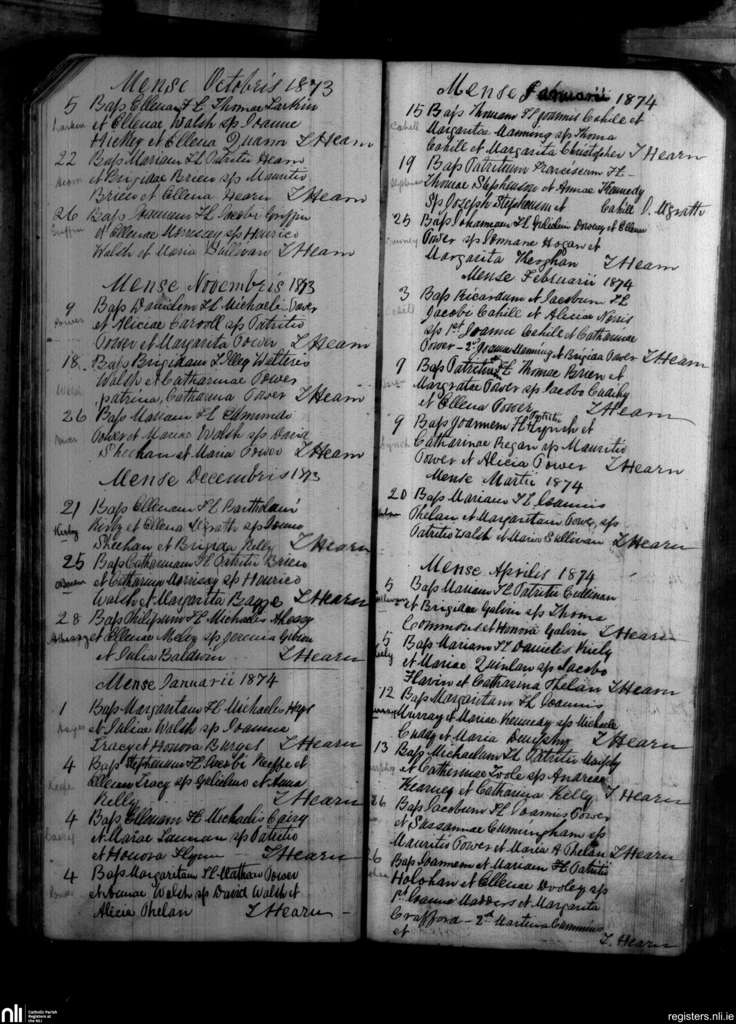 Mense Octobris 1873
5 Bap Ellenam Fl Thomae Larkin
Larkin et Ellenae Walsh sp Joanne
Hickey et Ellena Quann T Hearn
22 Bap Mariam Fl Patritii Hearn
Hearn et Brigidae Brien sp Mauritio
Brien et Ellena Hearn T Hearn
26 Bap Fl Jacobi Griffin
Griffin et Ellenae Morrissy sp Henrico
Walsh et Maria Sullivan T Hearn
Mense Novembris 1873
9 Bap Danielem Fl Michaeli Power
Power et Aliciae Carroll sp Patritio
Power et Margarita Power T Hearn
18 Bap Brigidam Walteri
Walsh Walsh et Catharinae Power
patrina, Catharina Power T Hearn
26 Bap Mariam Fl Edmundi
Power Power et Mariae Walsh sp David
Sheehan et Maria Power T Hearn
Mense Decembris 1873
21 Bap Ellenam Fl Bartholomi
Kirby et Ellena Mgrath sp
Sheehan et Brigida Kelly T Hearn
25 Bap Catharinam Fl Patritii Brien
et Catharinae Morrissy sp Henrico
Walsh et Margarita T Hearn
28 Bap Philipum Fl Michaelis Ahessy
et Ellenae sp Jeremia
et Julia Baldwin T Hearn
Mense Januarii 1874
1 Bap Margaritam Fl Michaelis Hays
Hayes et Juliae Walsh sp Joanne
Tracy et Honora Burges T Hearn
4 Bap Stephenum Fl Jacobi Keeffe et
Keeffe Ellenae Tracy sp Gulielmo et Anna
Kelly T Hearn
4 Bap Ellenam Fl Michaelis Casey
Casey et Mariae sp Patritio
et Honora Flynn T Hearn
4 Bap Margaritam Fl Power
Power et Annae Walsh sp David Walsh et
Alicia Phelan T Hearn
Mense Januarii 1874
15 Bap Thomam Fl Joannis Cahill et
Cahill Margarita Manning sp Thoma
Cahill et Margarita Christopher T Hearn
19 Bap Patritium Franciscum Fl
Thomae Stephenson et Annae Kennedy
sp Joseph Stephenson et Cahill D. Mgrath
25 Bap Johannam Fl Guliel et Ellena
Power sp Joanne Hogan et
Margarita T Hearn
Mense Februarii 1874
3 Bap Ricardum et Jacobum Fl
Cahill Jacobi Cahill et Alicia Norris
sp 1st Joanne Cahill et Catharinae
Power - 2d Joanne Manning et Brigida Power T Hearn
9 Bap Patritium Fl Thomae Breen et
Margratae Power sp Jacobo
et Ellena Power T Hearn
9 Bap Joannem Fl Patritii Lynch et
Lynch Catharinae Regan sp Mauritio
Power et Alicia Power T Hearn
Mense Martii 1874
20 Bap Mariam Fl Joannis
Phelan et Margaritam Power, sp
Patritio Walsh et Maria Sullivan T Hearn
Mense Aprilis 1874
5 Bap Mariam Fl Patritii Cullinan
et Brigidae Galvin sp Thoma
Commons et Honora Galvin T Hearn
5 Bap Mariam Fl Danielis Kiely
Kiely et Mariae Quinlan sp Jacobo
Flavin et Catharina Phelan T Hearn
12 Bap Margaritam Fl Joannis
Murray et Mariae Kennedy sp Michaele
Cuddy et Maria Dunphy T Hearn
13 Bap Michaelum Fl Patritii Murphy
et Catherinae Toole sp Andreae
Kearney et Catharina Kelly T Hearn
26 Bap Jacobum Fl Joannis Power
et Sussannae Cunningham sp
Mauritio Power et Maria A Phelan T Hearn
26 Bap Joannem et Mariam Fl Patritii
Holohan et Ellenae Dooley sp
1st Joanne Madders et Margarita
Crafford - 2d Martino Cummins
et T. Hearn
nli Catholic Parish
Registers at
the NLI
registers.nli.ie